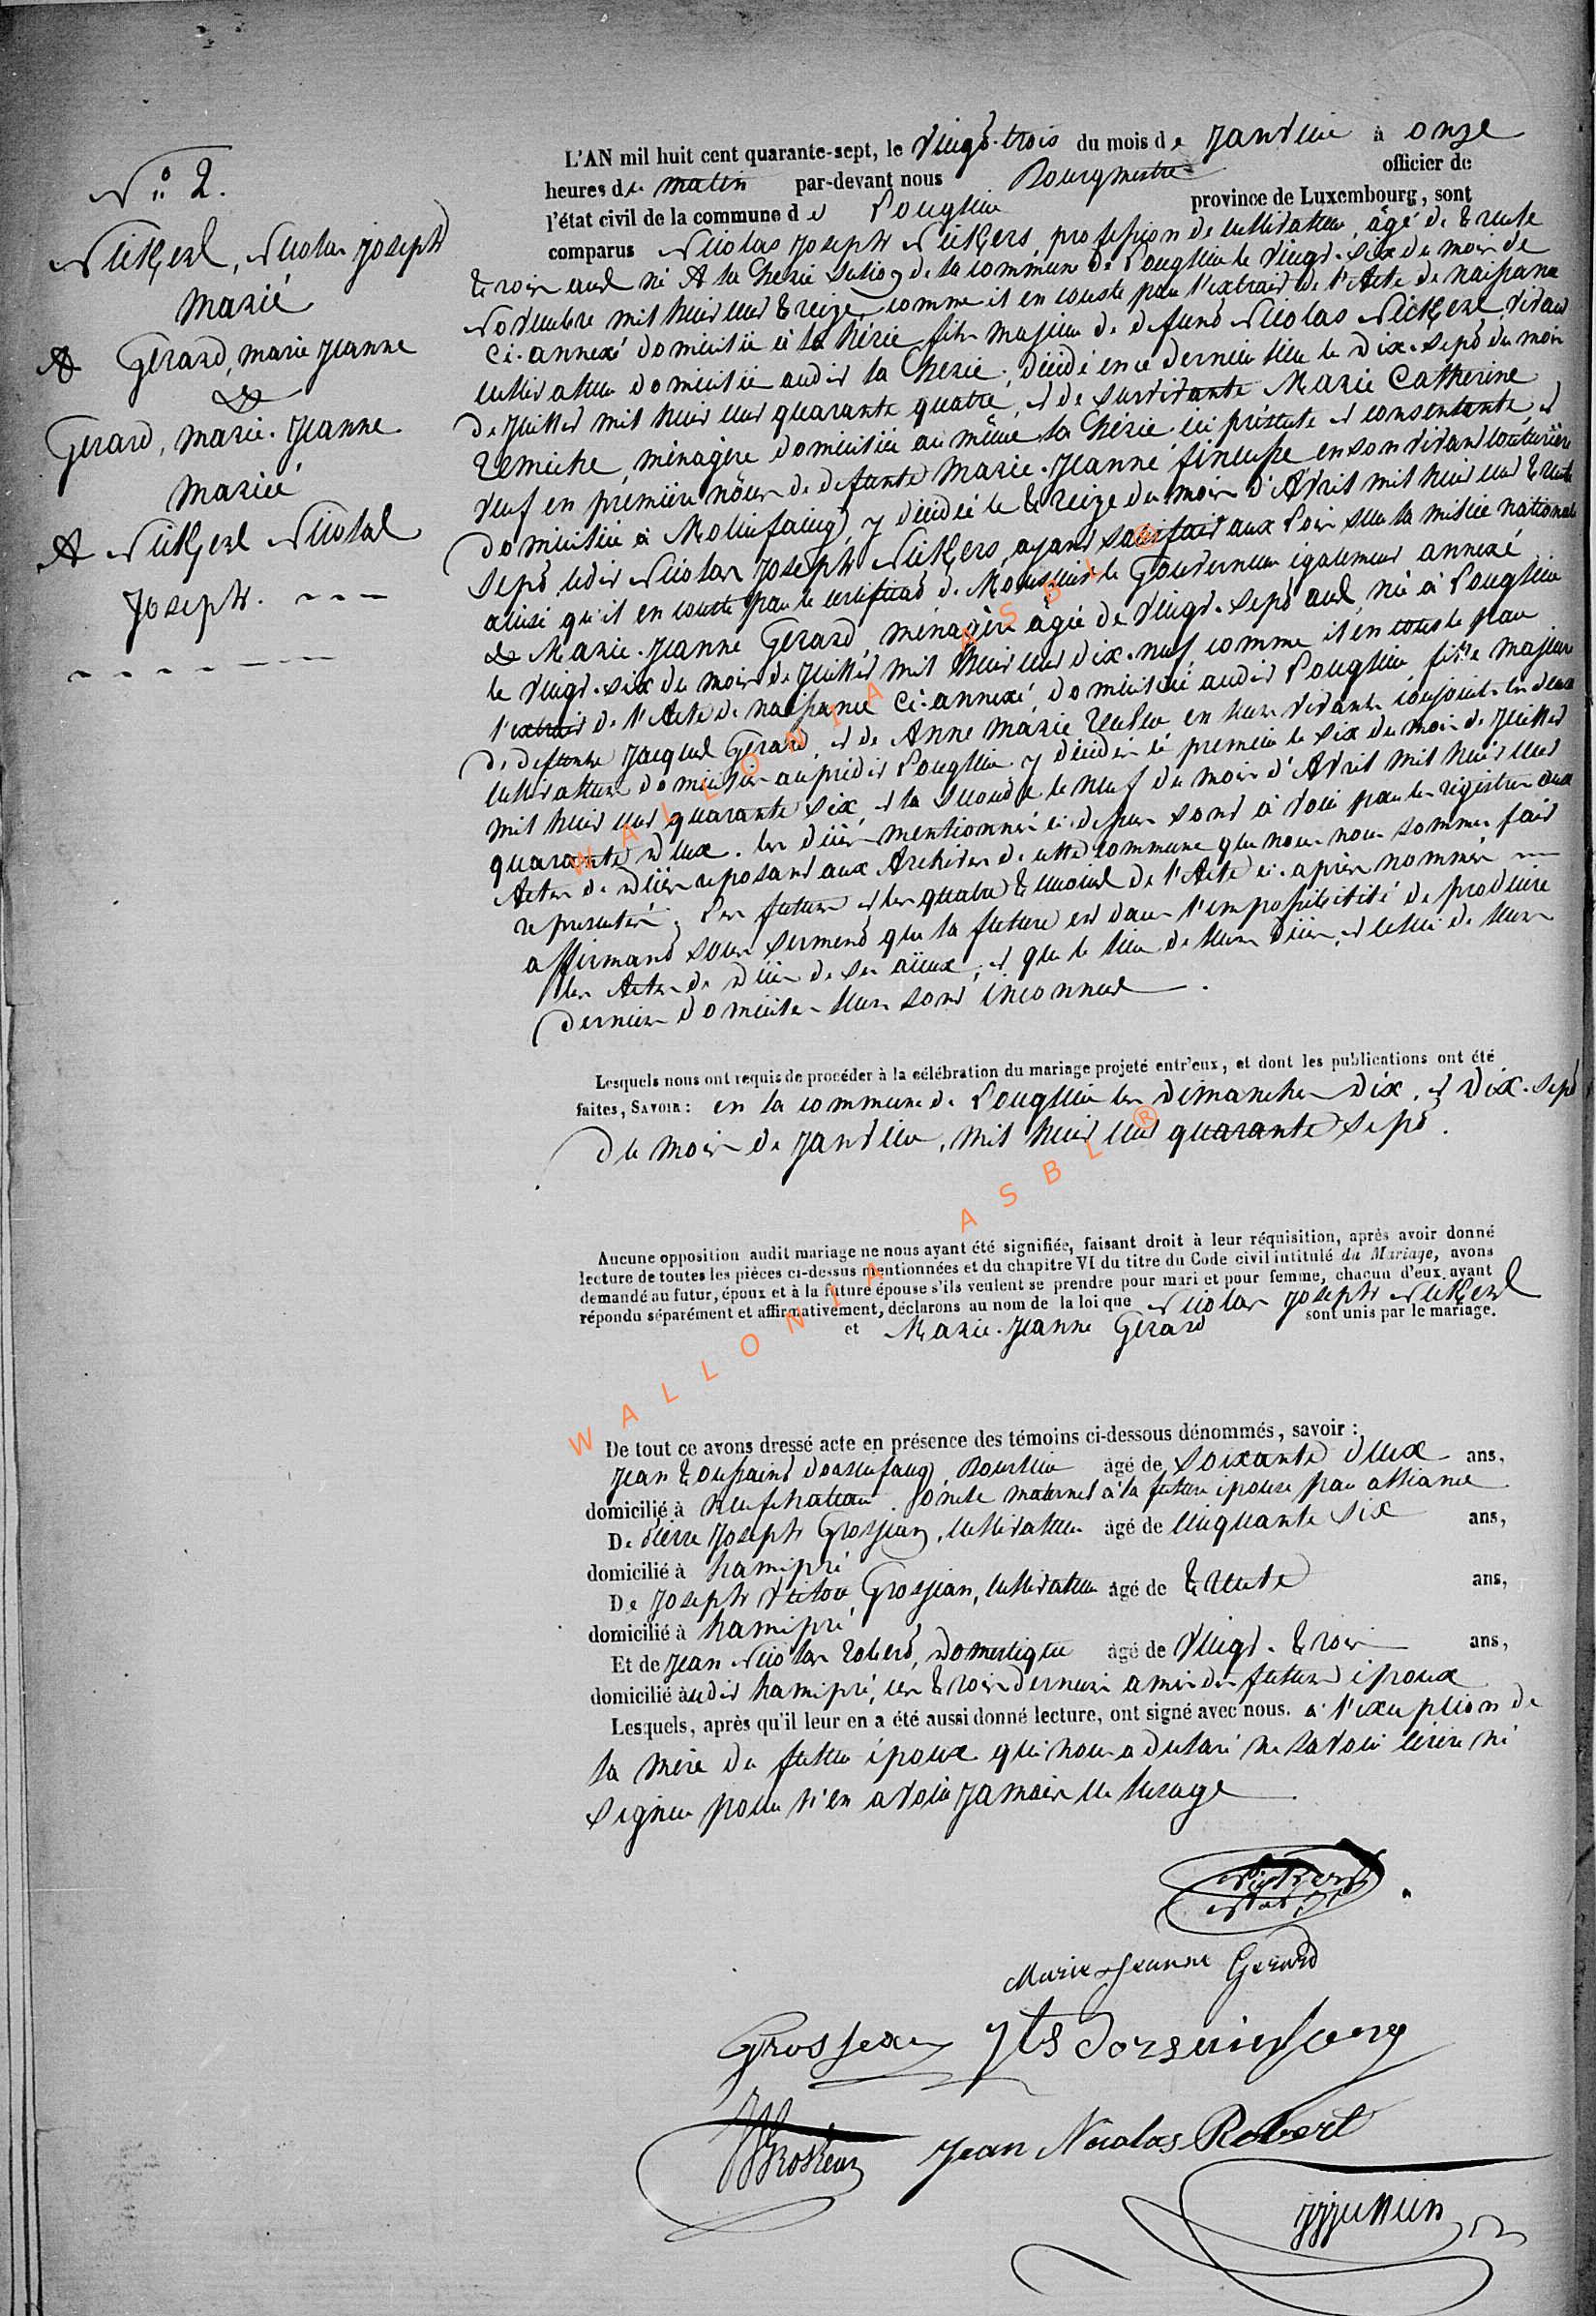 N.° 2.
Nickers, Nicolas Joseph
Marié
A Gerard, marie Jeanne
&
Gerard, Marie-Jeanne
Mariée
A Nickers Nicolas
Joseph.
L'AN mil huit cent quarante-sept, le vingt-trois du mois de Janvier à onze
heures du matin par-devant nous Bourgmestre officier de
l'état civil de la commune de Longlier province de Luxembourg, sont
comparus Nicolas Joseph Nickers, profession de cultivateur, âgé de trente
trois ans né A la Cherie section de la commune de Longlier le vingt-six du mois de
Novembre mil huit cent treize, comme il en conste par l'extrait de l'Acte de naissance
ci-annexé domicilié à la Hérie fils majeur de defunt Nicolas Nickers, vivant
cultivateur domicilié audit la Cherie, décédé en ce dernier lieu le dix-sept du mois
de Juillet mil huit cent quarante quatre, et de survivante Marie Catherine
Remiche, ménagère domiciliée au même la Chérie ici présente et consentante, et
veuf en première nôces de defunte Marie-Jeanne fineusse en son vivant couturière
domiciliée à Molinfaing, y décédée le treize du mois d'Avril mil huit cent trente
sept, ledit Nicolas Joseph Nickers, ayant satisfait aux Lois sur la milice nationale
ainsi qu'il en conste par le certificat de Monsieur le Gouverneur également annexé
& Marie-Jeanne Gerard, ménagère âgée de vingt-sept ans, née à Longlier
le vingt-six du mois de Juillet mil huit cent dix-neuf comme il en conste par
l'extrait de l'Acte de naissance ci-annexé, domiciliée audit Longlier fille majeure
de defunts Jacques Gerard, et de Anne Marie en leurs vivants conjoints les deux
cultivateurs domiciliés au prédit Longlier y décédés le premier le six du mois de Juillet
mil huit cent quarante six, et la seconde le neuf du mois d'Avril mil huit cent
quarante deux. les décès mentionnés ci-dessus sont à voir par les registres aux
Actes de décès reposant aux Archives de cette commune que nous nous sommes fait
representés. Les futurs et les quatre témoins de l'Acte ci-après nommés
affirmant sous serment que la future est dans l'impossibilité de produire
les Actes de décès de ses aïeux, et que le lieu de leurs décès, et celui de leurs
derniers domiciles leurs sont inconnus.
Lesquels nous ont requis de procéder à la célébration du mariage projeté entr'eux, et dont les publications ont été
faites, SAVOIR: en la commune de Longlier les dimanches dix, et dix-sept
du mois de Janvier, mil huit cent quarante sept.
Aucune opposition audit mariage ne nous ayant été signifiée, faisant droit à leur réquisition, après avoir donné
lecture de toutes les pièces ci-dessus mentionnées et du chapitre VI du titre du Code civil intitulé du Mariage, avons
demandé au futur, époux et à la future épouse s'ils veulent se prendre pour mari et pour femme, chacun d'eux ayant
répondu séparément et affirmativement, déclarons au nom de la loi que Nicolas Joseph Nickers
et Marie-Jeanne Gerard sont unis par le mariage.
De tout ce avons dressé acte en présence des témoins ci-dessous dénommés, savoir:
Jean Toussaint Dorsinfaing, Boursier âgé de soixante deux ans,
domicilié à Neufchateau. oncle maternel à la future épouse par alliance
De Pierre Joseph Grosjean, cultivateur âgé de cinquante six ans,
domicilié à hamipré
De Joseph Victor Grosjean, cultivateur âgé de trente ans,
domicilié à hamipré
Et de Jean Nicolas Robert, Domestique âgé de vingt-trois ans,
domicilié audit hamipré, les trois derniers amis des futurs époux
Lesquels, après qu'il leur en a été aussi donné lecture, ont signé avec nous. à l'exception de
la mère du futur époux qui nous a déclaré ne savoir écrire ni
signer pour n'en avoir jamais eu l'usage
Marie Jeanne Gerard
Grosjean Jts Dorsainfaing
Grosjean Jean Nicolas Robert
WALLONIA ASBL ®
WALLONIA ASBL ®